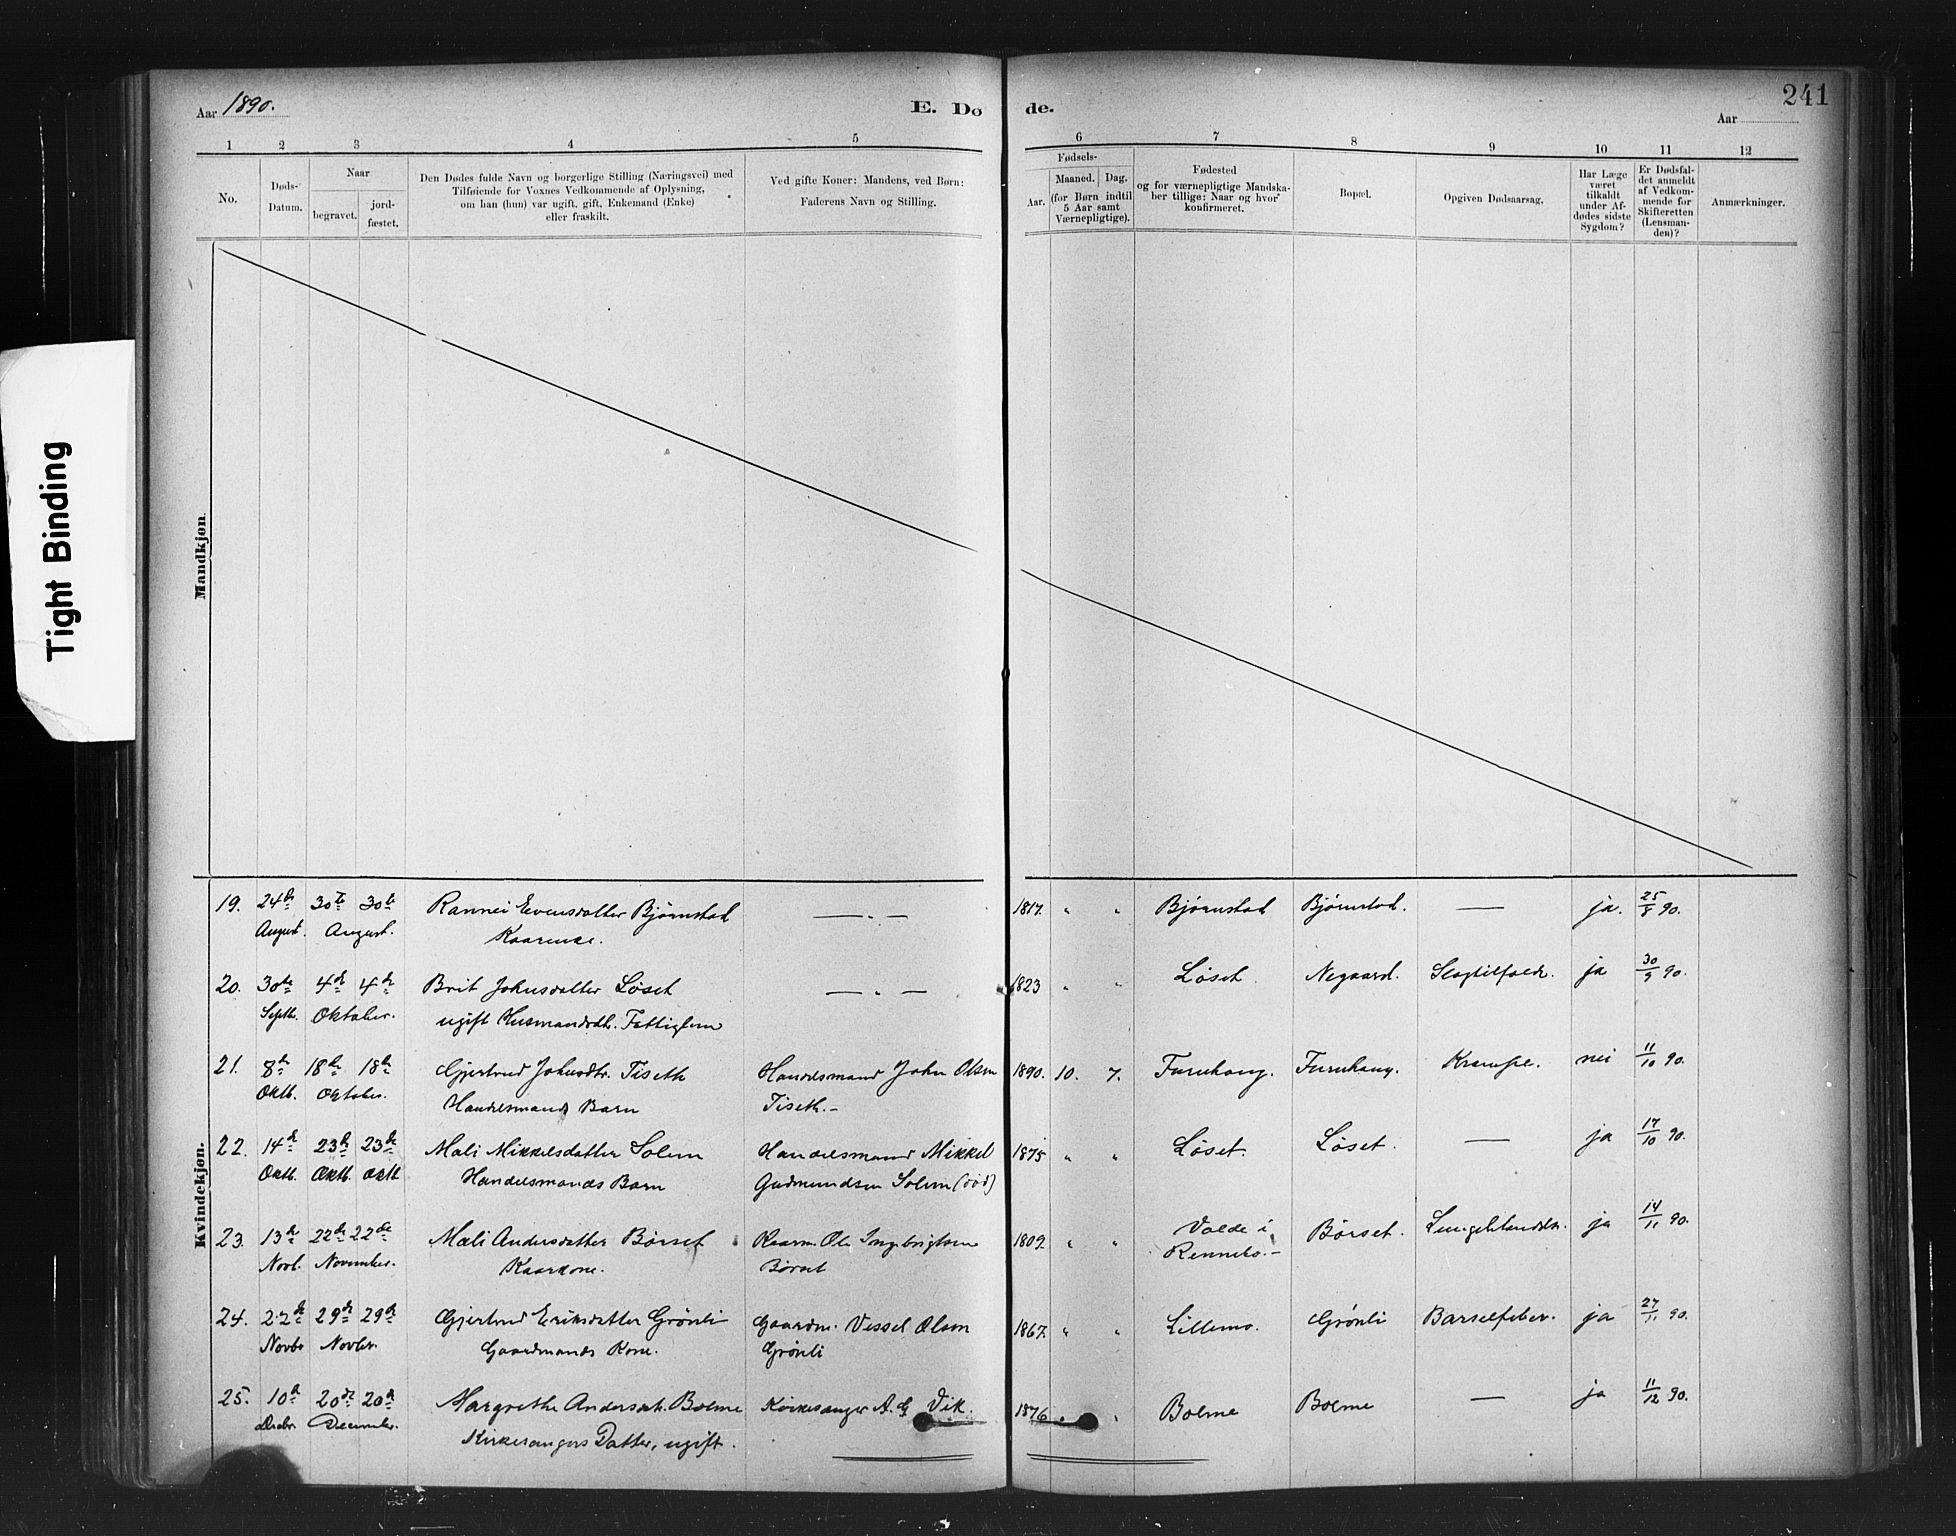 Tight Binding
Aar 1890.
E. Dø
de.
241
Aar
1 2 3 4 5 6 7 8 9 10 11 12
No.
Døds-
Datum.
Naar
begravet.
jord-
fæstet.
Den Dødes fulde Navn og borgerlige Stilling (Næringsvei) med
Tilføiende for Voxnes Vedkommende af Oplysning,
om han (hun) var ugift, gift, Enkemand (Enke)
eller fraskilt.
Ved gifte Koner: Mandens, ved Børn:
Faderens Navn og Stilling.
Fødsels-
Aar.
Maaned. Dag.
(for Børn indtil
5 Aar samt
Værnepligtige).
Fødested
og for værnepligtige Mandska-
ber tillige: Naar og hvor
konfirmeret.
Bopæl.
Opgiven Dødsaarsag.
Har Læge
været
tilkaldt
under Af-
dødes sidste
Sygdom?
Er Dødsfal-
det anmeldt
af Vedkom-
mende for
Skifteretten
(Lensman-
den)?
Anmærkninger.
Mandkjøn.
Kvindekjøn.
19. 24de 30te 30te Rannei Evensdatter Bjørnstad — „ — 1817. „ „ Bjørnstad Bjørnstad. — ja. 25/8 90.
August. August.
20. 30te 4de 4de Brit Johnsdatter Løset — „ — 1823 „ „ Løset. Negaard. ja 30/9 90.
Septb. Oktober. ugift Husmandsdtr. Fattiglem
21. 8de 18de 18de Gjertrud Johnsdtr. Tiseth Handelsmand John Olsen 1890. 10. 7. Furuhaug. Furuhaug. Krampe. nei 11/10 90.
Oktb. Oktober. Handelsmands Barn Tiseth.-
22. 14de 23de 23de Mali Mikkelsdatter Solem Handelsmand Mikkel 1875 „ „ Løset. Løset. — ja 17/10 90.
Oktb. Oktb. Oktb Handelsmands Barn Gudmundsen Solem (død)
23. 13de 22de 22de Mali Andersdatter Børset Kaarm. Ole Ingebrigtsen 1809. „ „ Volde i Børset. ja 14/11 90.
Novb. November. Kaarkone. Børset Rennebo.-
24. 22de 29de 29de Gjertrud Eriksdatter Grønli Gaardm. Vessel Olsen 1867. „ „ Lillemo. Grønli Barselfeber. ja 27/11 90.
Novbr Novbr. Gaardmands Kone. Grønli
25. 10de 20de 20de Margrethe Andersdtr. Bolme Kirkesanger A. G. Vik. 1876 „ „ Bolme Bolme — ja 11/12 90.
Decbr. December. Kirkesangers Datter, ugift.